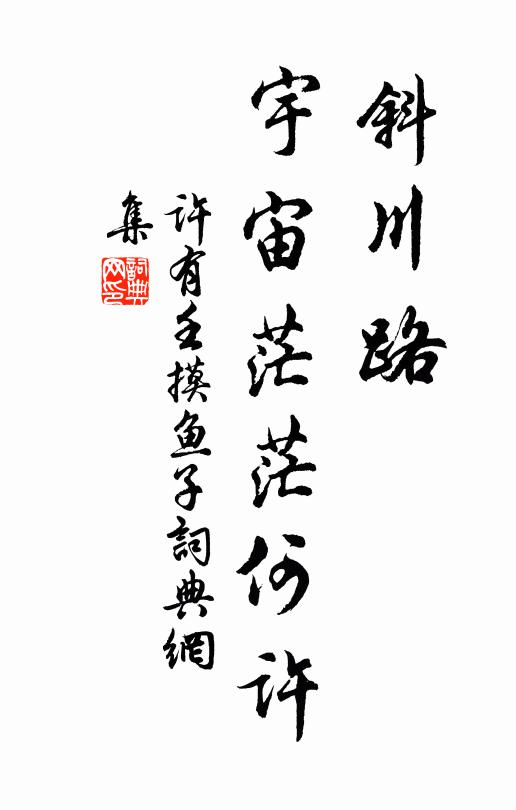 斜川路
宇宙茫茫何許
許有壬摸鱼子詞典網
集
詞典
网印